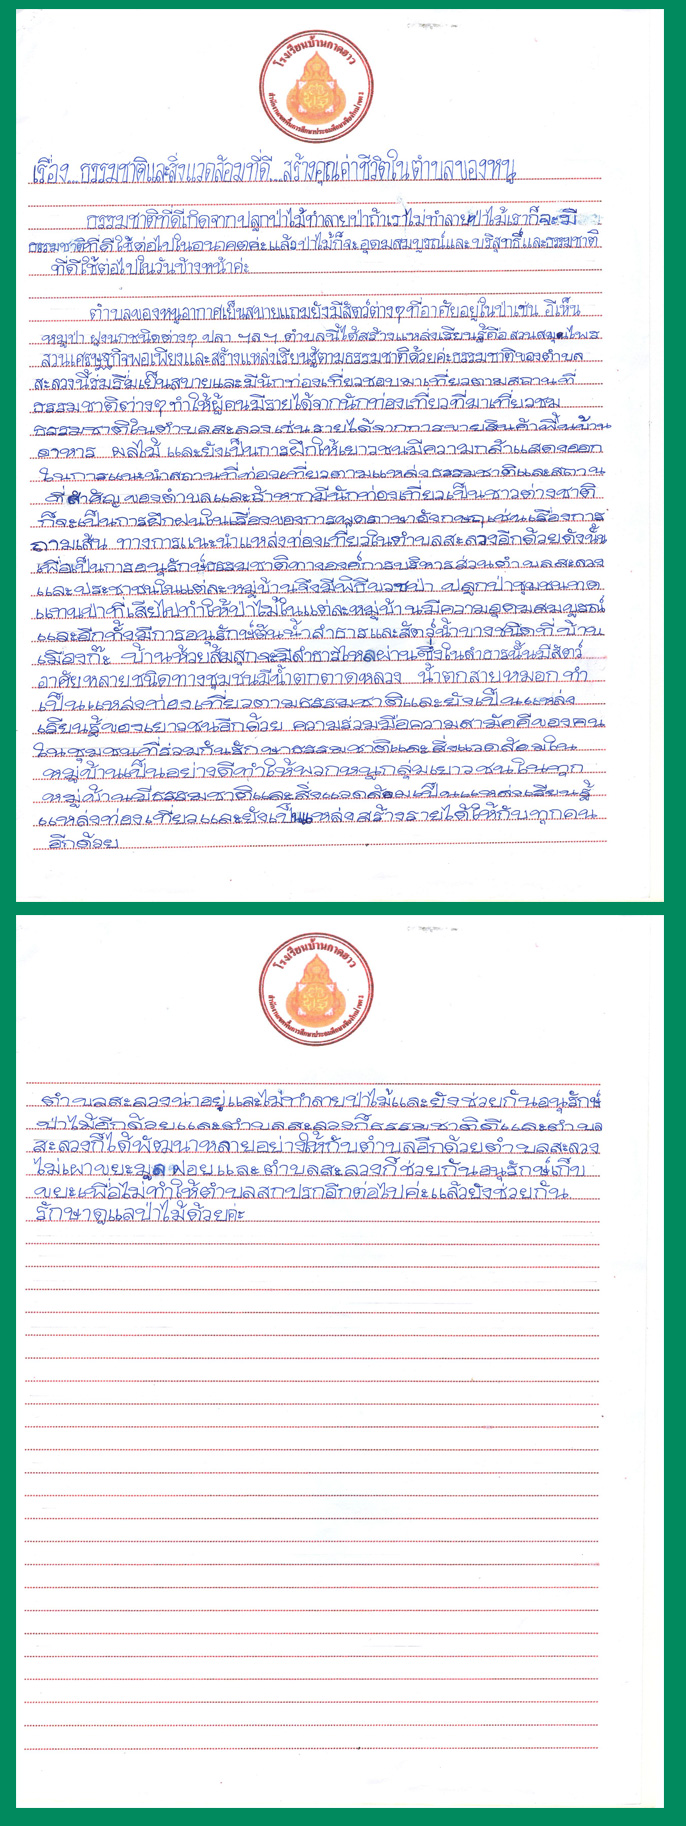 โรงเรียนบ้านกาดฮาว
เรื่อง...ธรรมชาติและสิ่งแวดล้อมที่ดี...สร้างคุณค่าชีวิตในตำบลของหนู
ธรรมชาติที่ดีเกิดจากปลูกป่าไม้ทำลายป่าถ้าเราไม่ทำลายป่าไม้เราก็จะมี
ธรรมชาติที่ดีใช้ต่อไปในอนาคตค่ะแล้วป่าไม้ก็จะอุดมสมบูรณ์และบริสุทธิ์และธรรมชาติ
ที่ดีใช้ต่อไปในวันข้างหน้าค่ะ
ตำบลของหนูอากาศเย็นสบายแถมยังมีสัตว์ต่างๆที่อาศัยอยู่ในป่าเช่น อีเห็น
หมูป่า ฝูงนกชนิดต่างๆ ปลา ฯลฯ ตำบลนี้ได้สร้างแหล่งเรียนรู้คือสวนสมุนไพร
สวนเศรษฐกิจพอเพียงและสร้างแหล่งเรียนรู้ตามธรรมชาติด้วยค่ะธรรมชาติของตำบล
สะลวงนี้ร่มรื่นเย็นสบายและมีนักท่องเที่ยวชอบมาเที่ยวตามสถานที่
ธรรมชาติต่างๆทำให้ผู้คนมีรายได้จากนักท่องเที่ยวที่มาเที่ยวชม
ธรรมชาติในตำบลสะลวงเช่นรายได้จากการขายสินค้าพื้นบ้าน
อาหาร ผลไม้ และยังเป็นการฝึกให้เยาวชนมีความกล้าแสดงออก
ในการแนะนำสถานที่ท่องเที่ยวตามแหล่งธรรมชาติและสถาน
ที่สำคัญของตำบลและถ้าหากมีนักท่องเที่ยวเป็นชาวต่างชาติ
ก็จะเป็นการฝึกฝนในเรื่องของการพูดภาษาอังกฤษเช่นเรื่องการ
ถามเส้น ทางการแนะนำแหล่งท่องเที่ยวในตำบลสะลวงอีกด้วยดังนั้น
เพื่อเป็นการอนุรักษ์ธรรมชาติทางองค์การบริหารส่วนตำบลสะลวง
และประชาชนในแต่ละหมู่บ้านจึงมีพิธีบวชป่า ปลูกป่าชุมชนทด
แทนป่าที่เสียไปทำให้ป่าไม้ในแต่ละหมู่บ้านมีความอุดมสมบูรณ์
และอีกทั้งมีการอนุรักษ์ต้นน้ำลำธารและสัตว์น้ำบางชนิดที่บ้าน
เมืองก๊ะ บ้านห้วยส้มสุกจะมีลำธารไหลผ่านซึ่งในลำธารนั้นมีสัตว์
อาศัยหลายชนิดทางชุมชนมีน้ำตกตาดหลวง น้ำตกสายหมอก ทำ
เป็นแหล่งท่องเที่ยวตามธรรมชาติและยังเป็นแหล่ง
เรียนรู้ของเยาวชนอีกด้วย ความร่วมมือความสามัคคีของคน
ในชุมชนที่ร่วมกันรักษาธรรมชาติและสิ่งแวดล้อมใน
หมู่บ้านเป็นอย่างดีทำให้พวกหนูกลุ่มเยาวชนในทุก
หมู่บ้านมีธรรมชาติและสิ่งแวดล้อมเป็นแหล่งเรียนรู้
แหล่งท่องเที่ยวและยังเป็นแหล่งสร้างรายได้ให้กับทุกคน
อีกด้วย
โรงเรียนบ้านกาดฮาว
ตำบลสะลวงน่าอยู่และไม่ทำลายป่าไม้และยังช่วยกันอนุรักษ์
ป่าไม้อีกด้วยและตำบลสะลวงก็ธรรมชาติดีและตำบล
สะลวงก็ได้พัฒนาหลายอย่างให้กับตำบลอีกด้วยตำบลสะลวง
ไม่เผาขยะมูลฝอยและตำบลสะลวงก็ช่วยกันอนุรักษ์เก็บ
ขยะเพื่อไม่ทำให้ตำบลสกปรกอีกต่อไปค่ะแล้วยังช่วยกัน
รักษาดูแลป่าไม้ด้วยค่ะ